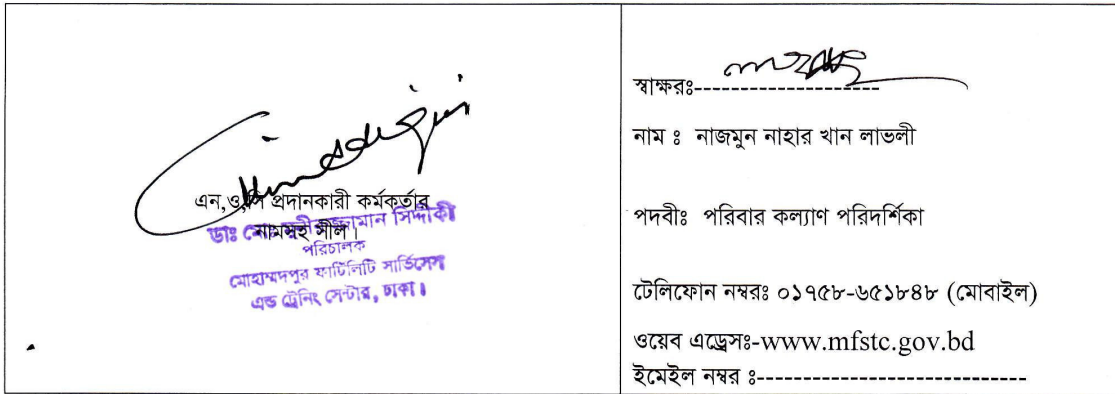 এন,ও,সি প্রদানকারী কর্মকর্তার
নামসহ সীল।
ডাঃ মোঃ সিদ্দীকী
পরিচালক
মোহাম্মদপুর ফার্টিলিটি সার্ভিসেস
এন্ড ট্রেনিং সেন্টার, ঢাকা।
স্বাক্ষরঃ--------------------
নাম ঃ নাজমুন নাহার খান লাভলী
পদবীঃ পরিবার কল্যাণ পরিদর্শিকা
টেলিফোন নম্বরঃ ০১৭৫৮-৬৫১৮৪৮ (মোবাইল)
ওয়েব এড্রেসঃ-www.mfstc.gov.bd
ইমেইল নম্বর ঃ-----------------------------